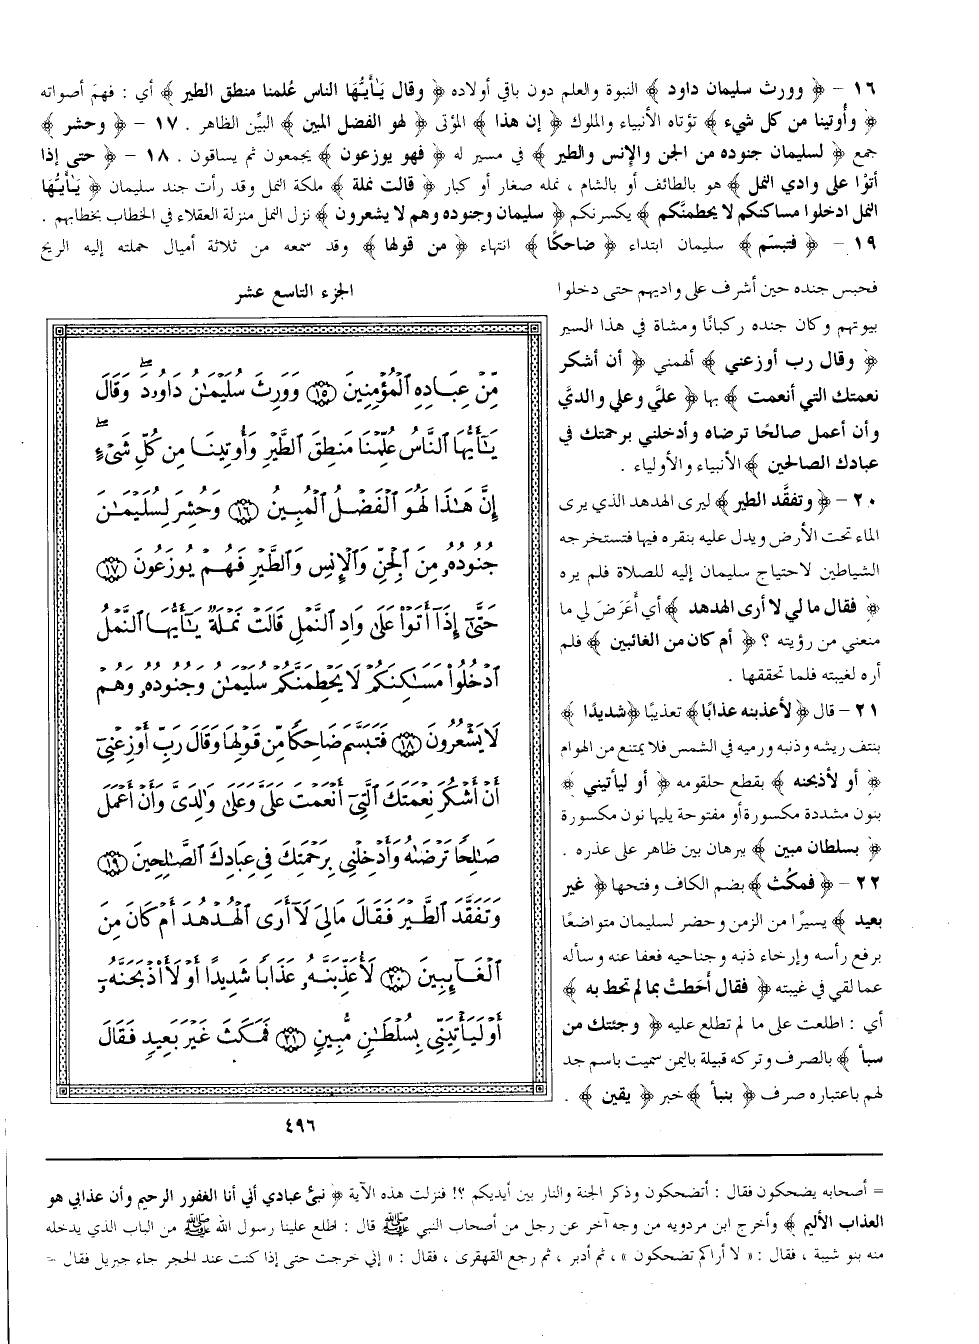 ١٦ – ﴿ وورث سليمان داود ﴾ النبوة والعلم دون باقي أولاده ﴿ وقال يَـٰأيـُّهَا الناس عُلمنا منطق الطير ﴾ أي : فهمَ أصواته
﴿ وأُوتينا من كل شيء ﴾ تؤتاه الأنبياء والملوك ﴿ إن هذا ﴾ المؤتى ﴿ لهو الفضل المبين ﴾ البيِّن الظاهر . ١٧ – ﴿ وحشر ﴾
جمع ﴿ لسليمان جنوده من الجن والإنس والطير ﴾ في مسير له ﴿ فهو يوزعون ﴾ يجمعون ثم يساقون . ١٨ – ﴿ حتى إذا
أتوْا على وادي النمل ﴾ هو بالطائف أو بالشام ، نمله صغار أو كبار ﴿ قالت نملة ﴾ ملكة النمل وقد رأت جند سليمان ﴿ يَـٰأيـُّهَا
النمل ادخلوا مساكنكم لا يحطمنَّكم ﴾ يكسرنكم ﴿ سليمان وجنوده وهم لا يشعرون ﴾ نزل النمل منزلة العقلاء في الخطاب بخطابهم .
١٩ – ﴿ فتبسَّم ﴾ سليمان ابتداء ﴿ ضاحكًا ﴾ انتهاء ﴿ من قولها ﴾ وقد سمعه من ثلاثة أميال حملته إليه الريح
فحبس جنده حين أشرف على واديهم حتى دخلوا
بيوتهم وكان جنده ركبانًا ومشاة في هذا السير
﴿ وقال رب أوزعني ﴾ ألهمني ﴿ أن أشكر
نعمتك التي أنعمت ﴾ بها ﴿ عليَّ وعلي والديَّ
وأن أعمل صالحًا ترضاه وأدخلني برحمتك في
عبادك الصالحين ﴾ الأنبياء والأولياء .
٢٠ – ﴿ وتفقَّد الطير ﴾ ليرى الهدهد الذي يرى
الماء تحت الأرض ويدل عليه بنقره فيها فتستخرجه
الشياطين لاحتياج سليمان إليه للصلاة فلم يره
﴿ فقال ما لي لا أرى الهدهد ﴾ أي أَعَرَضَ لي ما
منعني من رؤيته ؟ ﴿ أم كان من الغائبين ﴾ فلم
أره لغيبته فلما تحققها .
٢١ – قال ﴿ لأعذبنه عذابًا ﴾ تعذيبًا ﴿ شديدًا ﴾
بنتف ريشه وذنبه ورميه في الشمس فلا يمتنع من الهوام
﴿ أو لأذبحنه ﴾ بقطع حلقومه ﴿ أو ليأتيني ﴾
بنون مشددة مكسورة أو مفتوحة يليها نون مكسورة
﴿ بسلطان مبين ﴾ ببرهان بين ظاهر على عذره .
٢٢ – ﴿ فمكُث ﴾ بضم الكاف وفتحها ﴿ غير
بعيد ﴾ يسيرًا من الزمن وحضر لسليمان متواضعًا
برفع رأسه وإرخاء ذنبه وجناحيه فعفا عنه وسأله
عما لقي في غيبته ﴿ فقال أحَطتُ بما لم تحط به ﴾
أي : اطلعت على ما لم تطلع عليه ﴿ وجئتك من
سبأ ﴾ بالصرف وتركه قبيلة باليمن سميت باسم جد
لهم باعتباره صرف ﴿ بنبأ ﴾ خبر ﴿ يقين ﴾ .
الجزء التاسع عشر
مِّنْ عِبَادِهِ ٱلْمُؤْمِنِينَ ١٥ وَوَرِثَ سُلَيْمَـٰنُ دَاوُۥدَ ۖ وَقَالَ
يَـٰٓأَيُّهَا ٱلنَّاسُ عُلِّمْنَا مَنطِقَ ٱلطَّيْرِ وَأُوتِينَا مِن كُلِّ شَىْءٍ ۖ
إِنَّ هَـٰذَا لَهُوَ ٱلْفَضْلُ ٱلْمُبِينُ ١٦ وَحُشِرَ لِسُلَيْمَـٰنَ
جُنُودُهُۥ مِنَ ٱلْجِنِّ وَٱلْإِنسِ وَٱلطَّيْرِ فَهُمْ يُوزَعُونَ ١٧
حَتَّىٰٓ إِذَآ أَتَوْا۟ عَلَىٰ وَادِ ٱلنَّمْلِ قَالَتْ نَمْلَةٌ يَـٰٓأَيُّهَا ٱلنَّمْلُ
ٱدْخُلُوا۟ مَسَـٰكِنَكُمْ لَا يَحْطِمَنَّكُمْ سُلَيْمَـٰنُ وَجُنُودُهُۥ وَهُمْ
لَا يَشْعُرُونَ ١٨ فَتَبَسَّمَ ضَاحِكًا مِّن قَوْلِهَا وَقَالَ رَبِّ أَوْزِعْنِىٓ
أَنْ أَشْكُرَ نِعْمَتَكَ ٱلَّتِىٓ أَنْعَمْتَ عَلَىَّ وَعَلَىٰ وَٰلِدَىَّ وَأَنْ أَعْمَلَ
صَـٰلِحًا تَرْضَىٰهُ وَأَدْخِلْنِى بِرَحْمَتِكَ فِى عِبَادِكَ ٱلصَّـٰلِحِينَ ١٩
وَتَفَقَّدَ ٱلطَّيْرَ فَقَالَ مَالِىَ لَآ أَرَى ٱلْهُدْهُدَ أَمْ كَانَ مِنَ
ٱلْغَآئِبِينَ ٢٠ لَأُعَذِّبَنَّهُۥ عَذَابًا شَدِيدًا أَوْ لَأَا۟ذْبَحَنَّهُۥٓ
أَوْ لَيَأْتِيَنِّى بِسُلْطَـٰنٍ مُّبِينٍ ٢١ فَمَكَثَ غَيْرَ بَعِيدٍ فَقَالَ
٤٩٦
= أصحابه يضحكون فقال : أتضحكون وذكر الجنة والنار بين أيديكم ؟! فنزلت هذه الآية ﴿ نبئ عبادي أني أنا الغفور الرحيم وأن عذابي هو
العذاب الأليم ﴾ وأخرج ابن مردويه من وجه آخر عن رجل من أصحاب النبي ﷺ قال : اطلع علينا رسول الله ﷺ من الباب الذي يدخله
منه بنو شيبة ، فقال : « لا أراكم تضحكون » ، ثم أدبر ، ثم رجع القهقرى ، فقال : « إني خرجت حتى إذا كنت عند الحجر جاء جبريل فقال =